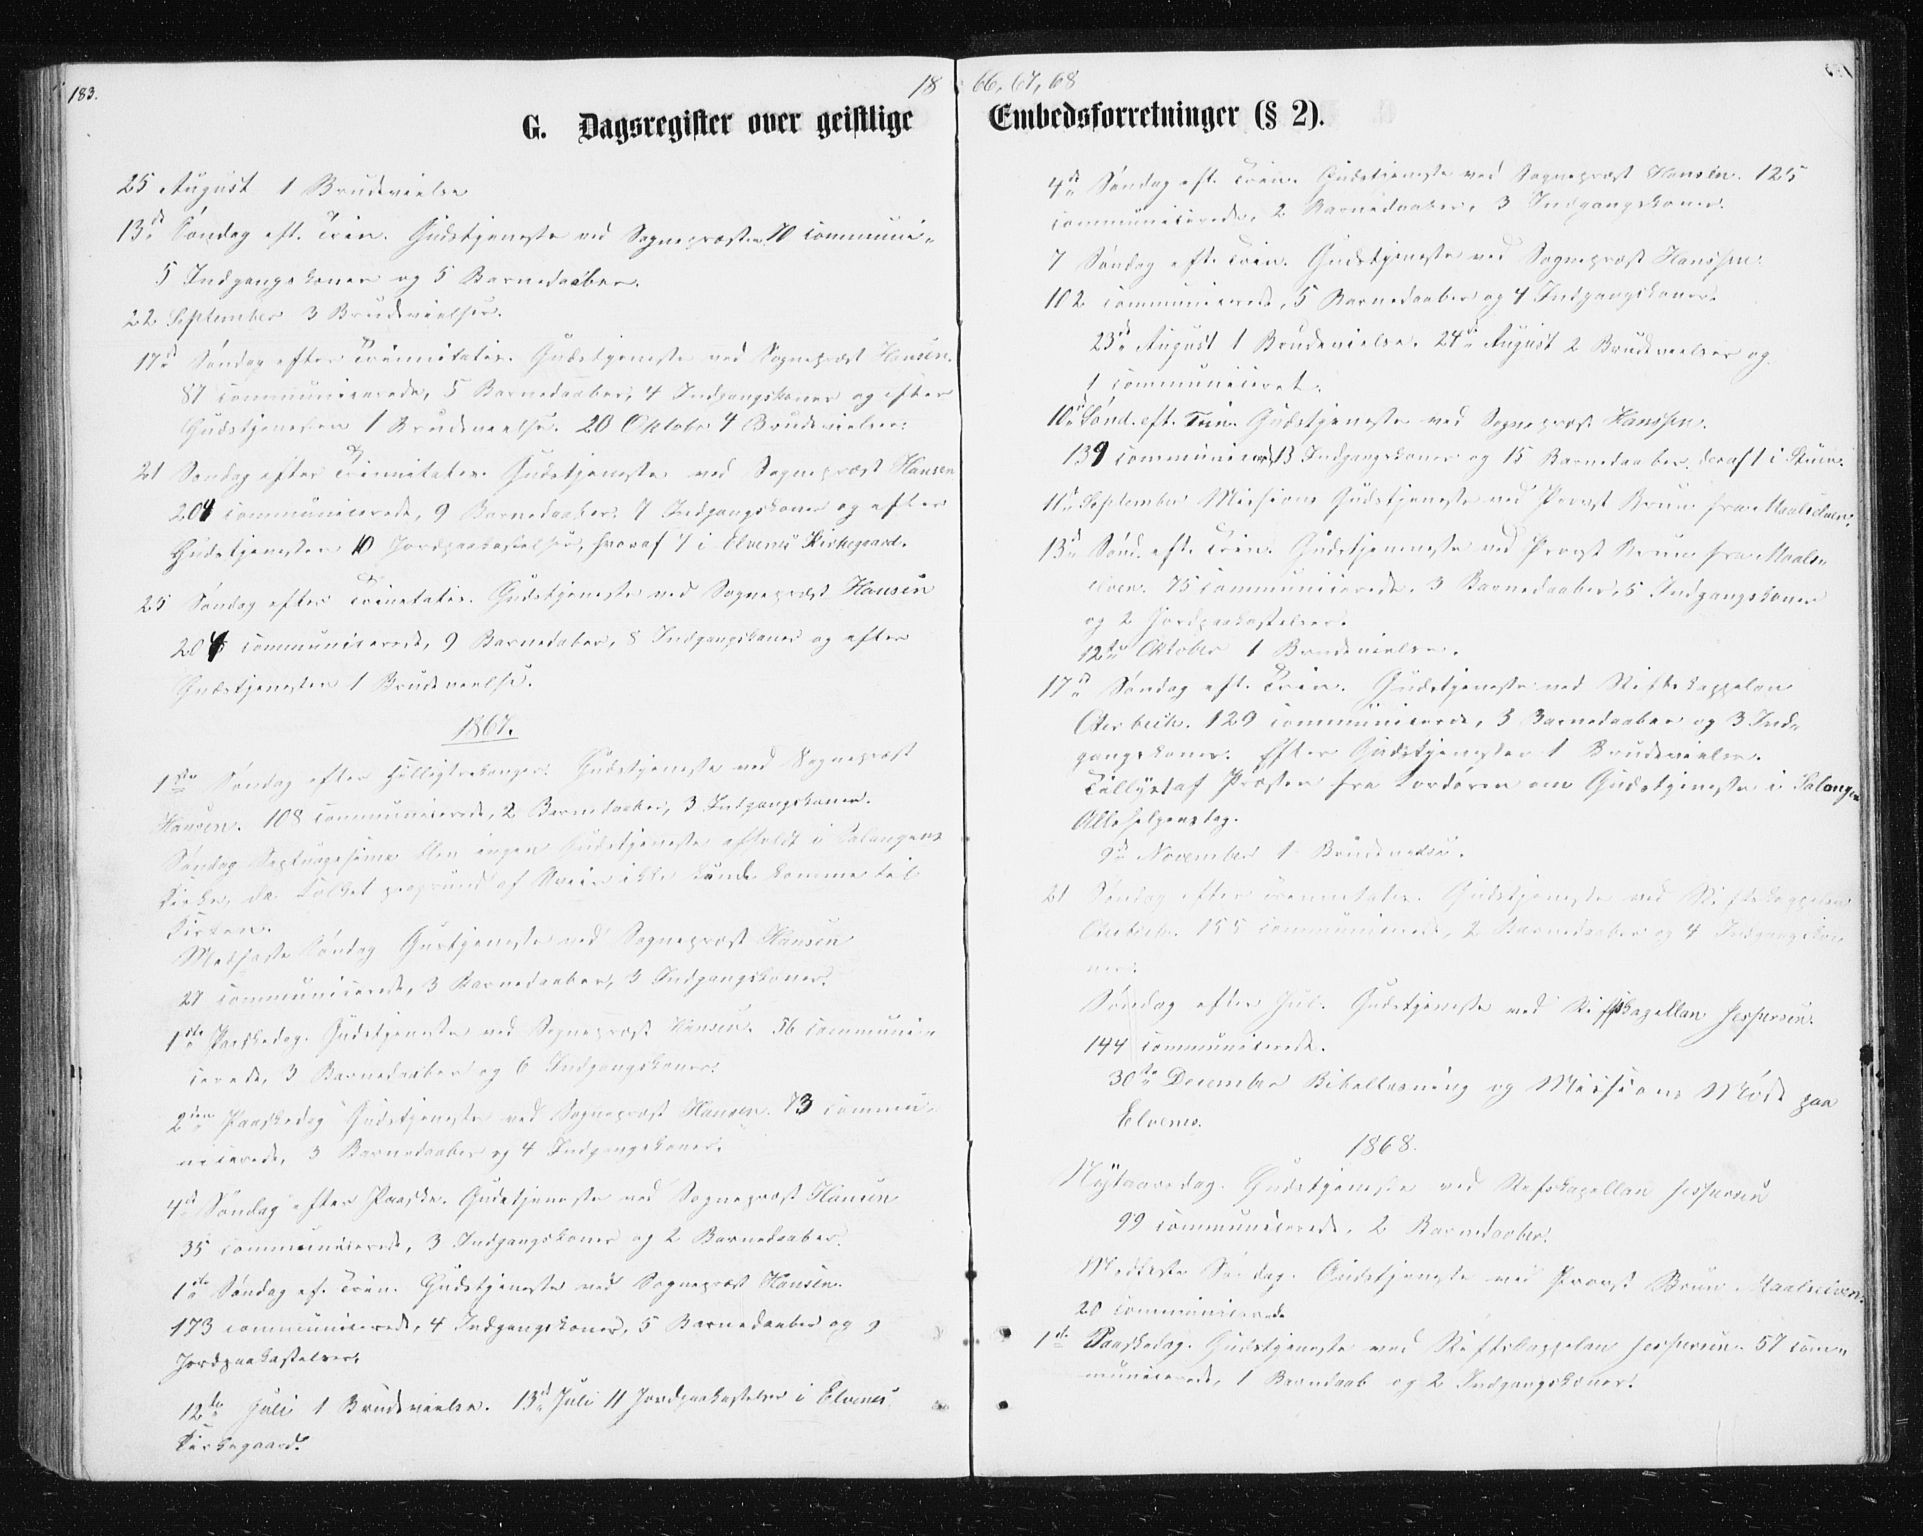 183.
18 66, 67, 68
G. Dagsregister over geistlige Embedsforretninger (§ 2).
25 August 1 Brudevielse
13de Søndag eft. Trin. Gudstjeneste ved Sognepræsten 70 communi-
5 Indgangskoner og 5 Barnedaaber.
22 September 3 Brudevielser.
17de Søndag efter Trinnitatis. Gudstjeneste ved Sognepræst Hansen.
87 communicerede, 5 Barnedaaber, 4 Indgangskoner og efter
Gudstjenesten 1 Brudevielse. 20 Oktober 4 Brudevielser.
21 Søndag efter Trinnitatis. Gudstjeneste ved Sognepræst Hansen
204 communicerede, 9 Barnedaaber, 7 Indgangskoner og efter
Gudstjenesten 10 Jordpaakastelser, hvoraf 7 i Elvenes Kirkegaard.
25 Søndag efter Trinetatis. Gudstjeneste ved Sognepræst Hansen
204 communicerede, 9 Barnedaber, 8 Indgangskoner og efter
Gudstjenesten 1 Brudevielse.
1867.
1ste Søndag efter Helligtrekonger. Gudstjeneste ved Sognepræst
Hansen. 108 communicerede, 2 Barnedaaber, 3 Indgangskoner.
Søndag Septuagesima blev ingen Gudstjeneste afholdt i Salangens
Kirke, da Folket paagrund af Veir ikke kunde komme til
Kirken.
Midfaste Søndag Gustjeneste ved Sognepræst Hansen
27 communicerede, 3 Barnedaaber, 3 Indgangskoner.
1ste Paaskedag. Gudstjeneste ved Sognepræst Hansen. 56 communi-
cerede, 3 Barnedaaber og 6 Indgangskoner.
2den Paaskedag Gudstjeneste ved Sognepræst Hansen. 73 commu-
nicerede, 3 Barnedaaber og 4 Indgangskoner.
4de Søndag efter Paaske. Gudstjeneste ved Sognepræst Hansen
35 communicerede, 3 Indgangskoner og 2 Barnedaaber.
1ste Søndag ef. Trin. Gudstjeneste ved Sognepræst Hansen.
173 communicerede, 4 Indgangskoner, 5 Barnedaaber og 9
Jordpaakastelser.
12te Juli 1 Brudevielse. 13de Juli 11 Jordpaakastelser i Elvenes
Kirkegaard.
4de Søndag eft. Trin. Gudstjeneste ved Sognepræst Hansen. 125
communicerede, 2 Barnedaaber, 3 Indgangskoner.
7 Søndag eft. Trin. Gudstjeneste ved Sognepræst Hanssen.
102 communicerede, 5 Barnedaaber og 4 Indgangskoner.
23de August 1 Brudevielse. 24de August 2 Brudevielser og
1 communiceret.
10de Sønd. eft. Trin. Gudstjeneste ved Sognepræst Hanssen.
139 communicerede, 13 Indgangskoner og 15 Barnedaaber, deraf 1 i
11te September Missions Gudstjeneste ved Provst Bruun fra Maalselven.
13de Sønd. eft. Trin. Gudstjenneste ved Provst Bruun fra Maals-
elven. 75 communicerede, 3 Barnedaaber, 5 Indgangskoner
og 2 Jordpaakastelser.
12te Oktober 1 Brudevielse.
17de Søndag eft. Trin. Gudstjeneste ved Stiftskappelan
Otterbech. 129 communicerede, 3 Barnedaaber og 3 Ind-
gangskoner. Efter Gudstjenesten 1 Brudevielse.
Tillyst af Præsten fra Kordøren om Gudstjeneste i Salangen
Allehelgensdag.
9de November 1 Brudevielse.
21 Søndag efter Trinnitatis. Gudstjeneste ved Stiftskappelan
Otterbech. 155 communicerede, 2 Barnedaaber og 4 Indgangsko-
ner.
Søndag efter Jul. Gudstjeneste ved Stiftskapellan Jespersen.
144 communicerede.
30te December Bibellæsning og Missions Møde paa
Elvenes.
1868.
Nytaarsdag. Gudstjeneste ved Stiftskapellan Jespersen
99 communicerede, 2 Barnedaaber.
Midfaste Søndag. Gudstjeneste ved Provst Bruun Maalselven.
20 communicerede
1ste Paaskedag. Gudstjeneste ved Stiftskappelan Jespersen. 57 com-
municerede, 1 Barndaab og 2 Indgangskoner.